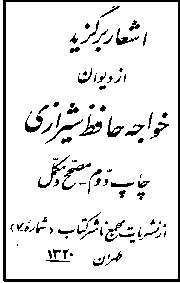 اشعار برگزیده
از دیوان
خواجه حافظ شیرازی
چاپ دوم - مصحح و مکمل
از نشریات مجمع ناشر کتاب (شماره ۷)
طهران
۱۳۲۰